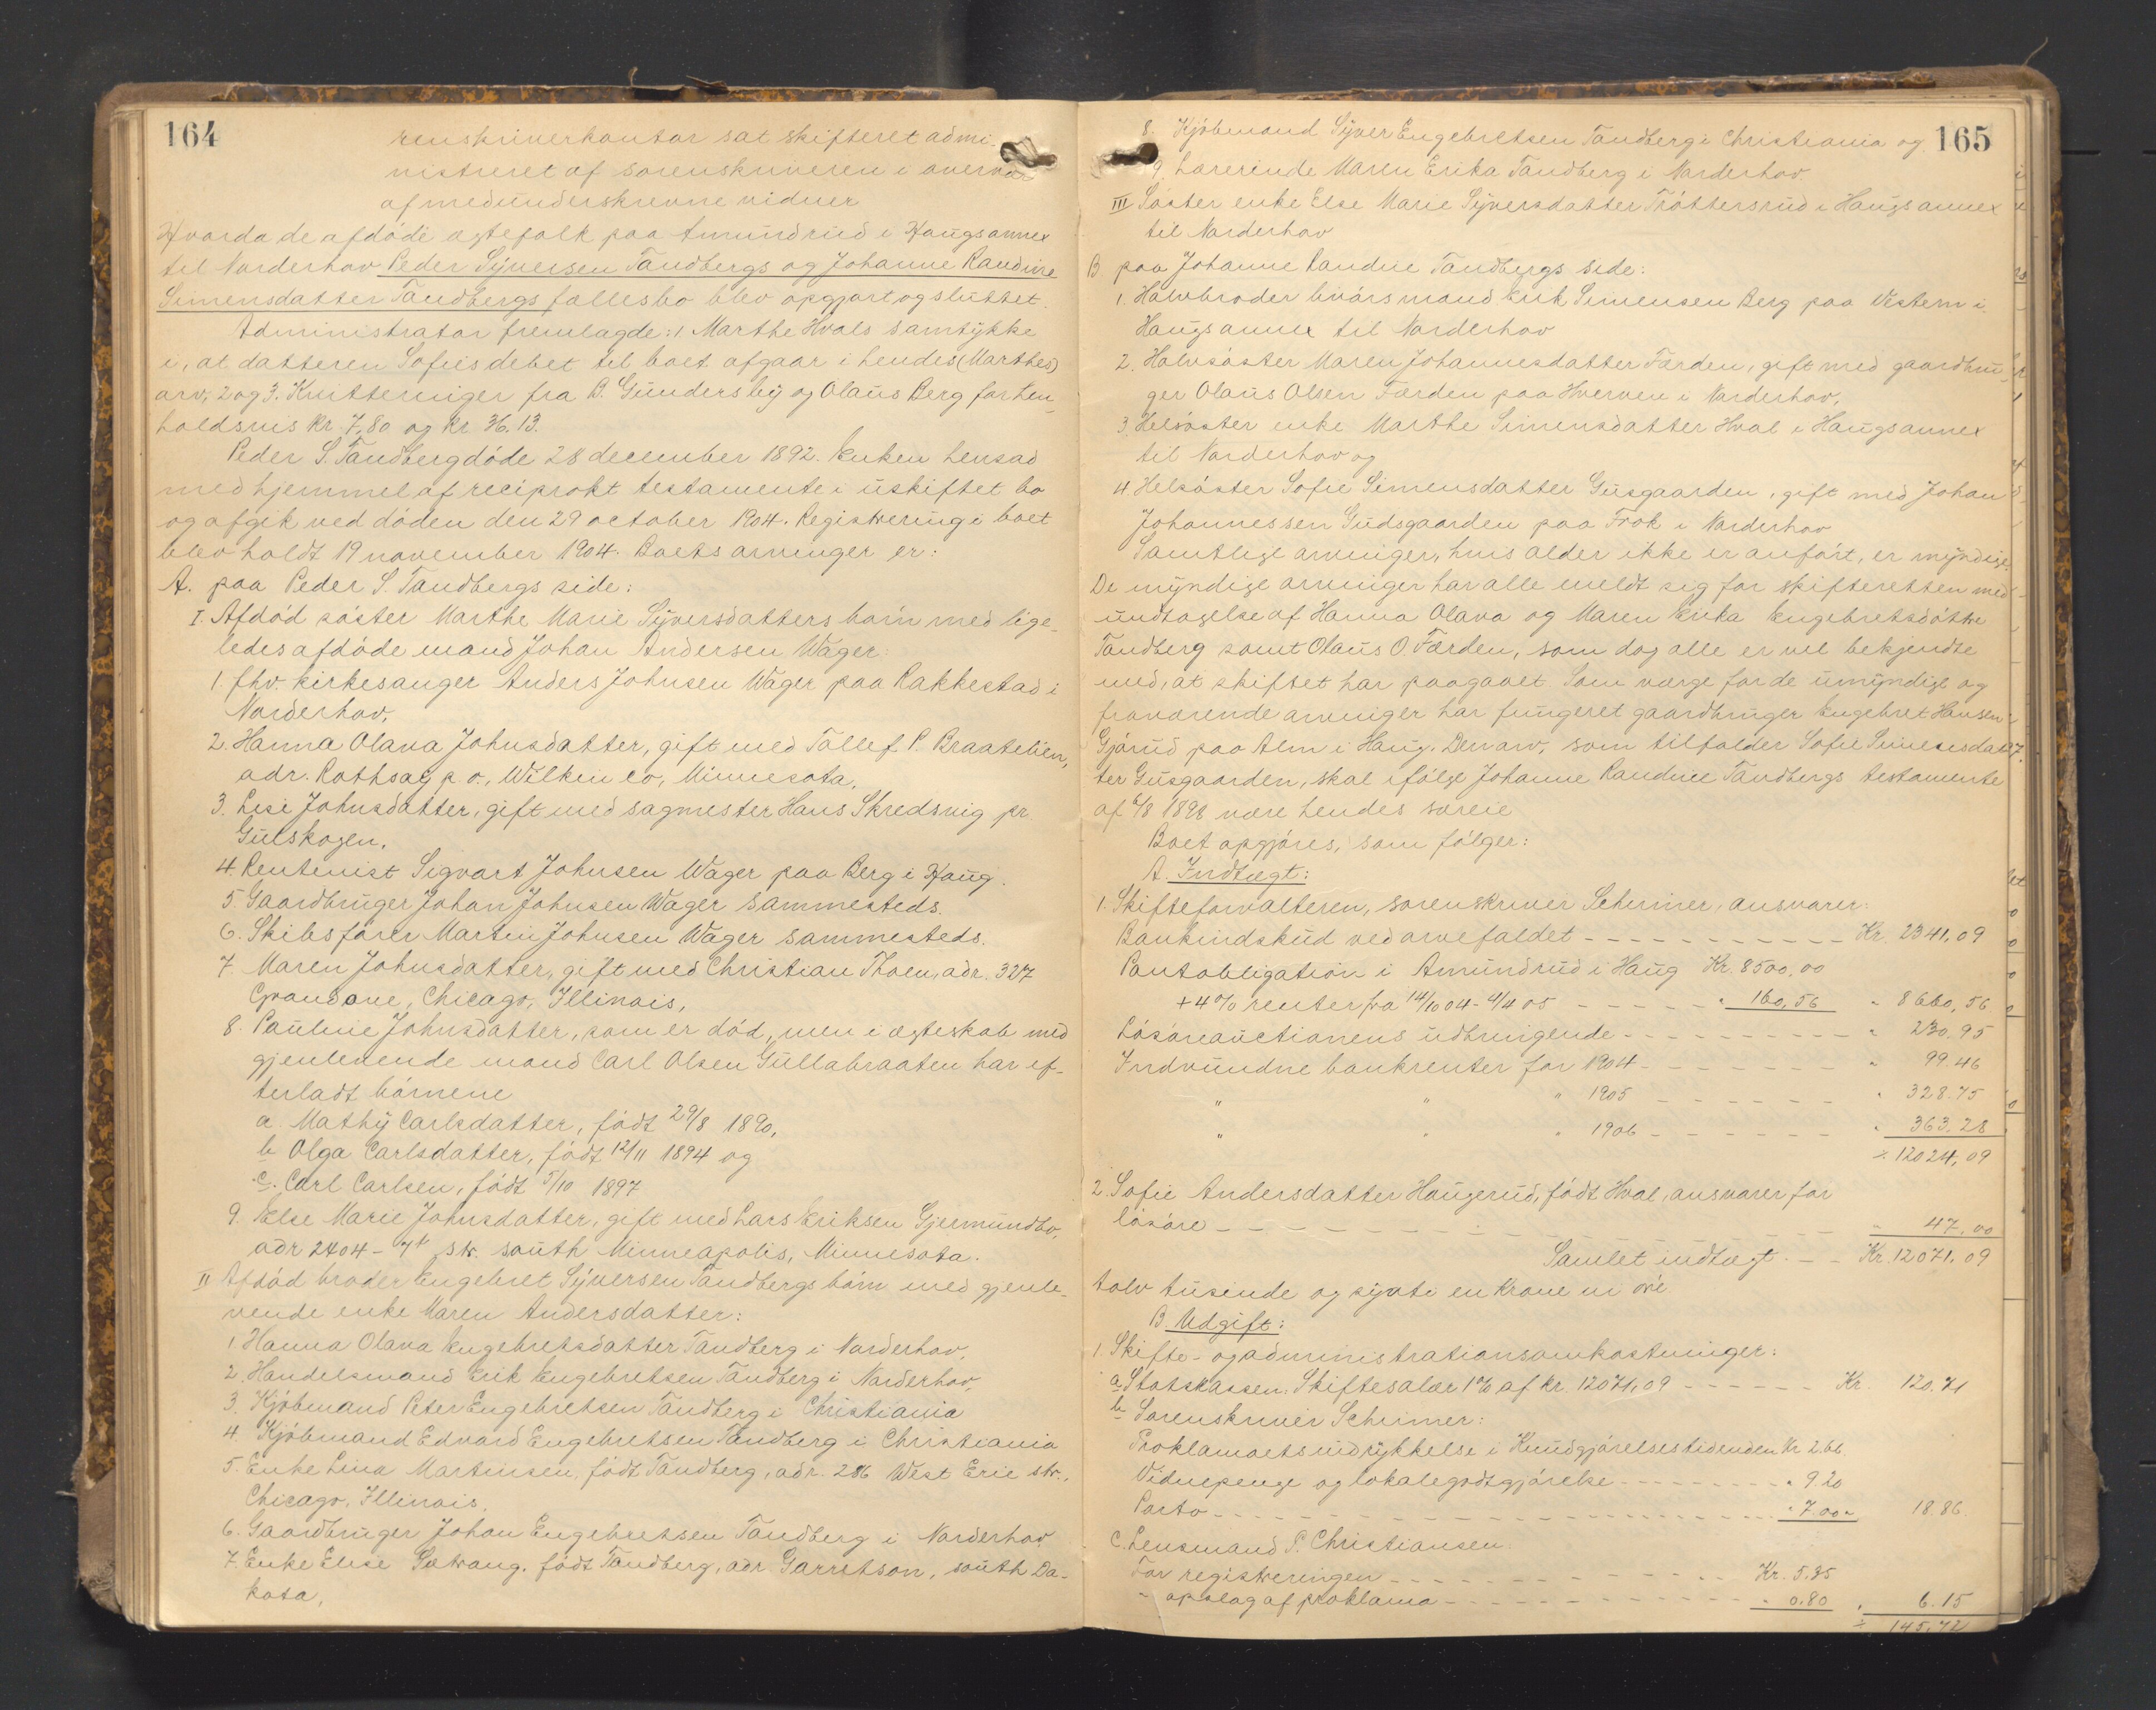 164
renskriverkontor sat skifteret admi-
nistreret af sorenskriveren i overvær
af medunderskrevne vidner
Hvorda de afdöde ægtefolk paa Amundrud i Haugs annex
til Norderhov Peder Syversen Tandbergs og Johanne Randine
Simensdatter Tandbergs fællesbo blev opgjort og sluttet.
Administrator fremlagde: 1. Marthe Hvals samtykke
i, at datteren Sofies debet til boet afgaar i hendes (Marthes)
arv, 2 og 3. Kvitteringer fra B. Gundersby og Olaus Berg for hen-
holdsvis Kr. 7,80 og Kr. 36.13.
Peder S. Tandberg döde 28 december 1892. Enken hensad
med hjemmel af reciprokt testamente i uskiftet bo
og afgik ved döden den 29 october 1904. Registrering i boet
blev holdt 19 november 1904. Boets arvinger er:
A. paa Peder S. Tandbergs side:
I. Afdöd söster Marthe Marie Syversdatters börn med lige-
ledes afdöde mand Johan Andersen Wager:
1. fhv. kirkesanger Anders Johnsen Wager paa Rakkestad i
Norderhov,
2. Hanna Olava Johnsdatter, gift med Tollef P. Braatelien,
adr. Rothsay p.o., Wilkin co, Minnesota,
3. Lise Johnsdatter, gift med sagmester Hans Skredsvig pr.
Gulskogen,
4. Rentenist Sigvart Johnsen Wager paa Berg i Haug.
5. Gaardbruger Johan Johnsen Wager sammesteds.
6. Skibsförer Martin Johnsen Wager sammesteds.
7. Maren Johnsdatter, gift med Christian Thoen, adr. 327
Grand ave, Chicago, Illinois,
8. Pauline Johnsdatter, som er död, men i ægteskab med
gjenlevende mand Carl Olsen Gullabraaten har ef-
terladt börnene
a. Mathy Carlsdatter, födt 29/8 1890,
b. Olga Carlsdatter, födt 12/11 1894 og
c. Carl Carlsen, födt 5/10 1897
9. Else Marie Johnsdatter, gift med Lars Eriksen Gjermundbo,
adr 2404 - 7t str. south Minneapolis, Minnesota.
II Afdöd broder Engebret Syversen Tandbergs börn med gjenle-
vende enke Maren Andersdatter:
1. Hanna Olava Engebretsdatter Tandberg i Norderhov,
2. Handelsmand Erik Engebretsen Tandberg i Norderhov,
3. Kjöbmand Peter Engebretsen Tandberg i Christiania
4. Kjöbmand Edvard Engebretsen Tandberg i Christiania
5. Enke Lina Martinsen, födt Tandberg, adr. 286 West Erie str.,
Chicago, Illinois,
6. Gaardbruger Johan Engebretsen Tandberg i Norderhov
7. Enke Elise Sætrang, födt Tandberg, adr. Garretson, south Da-
kota,
165
8. Kjöbmand Syver Engebretsen Tandberg i Christiania og
9. Lærerinde Maren Erika Tandberg i Norderhov.
III Söster enke Else Marie Syversdatter Tröttersrud i Haugs annex
til Norderhov
B. paa Johanne Randine Tandbergs side:
1. Halvbroder livörsmand Erik Simensen Berg paa Vestern i
Haugs annex til Norderhov
2. Halvsöster Maren Johannesdatter Færden, gift med gaardbru-
ger Olaus Olsen Færden paa Hverven i Norderhov,
3. Helsöster enke Marthe Simensdatter Hval i Haugs annex
til Norderhov og
4. Helsöster Sofie Simensdatter Gusgaarden, gift med Johan
Johannessen Gudsgaarden paa Frok i Norderhov
Samtlige arvinger, hvis alder ikke er anfört, er myndige.
De myndige arvinger har alle meldt sig for skifteretten med
undtagelse af Hanna Olava og Maren Erika Engebretsdötre
Tandberg samt Olaus O. Færden, som dog alle er vel bekjendte
med, at skiftet har paagaaet. Som værge for de umyndige og
fraværende arvinger har fungeret gaardbruger Engebret Hansen
Gjörud paa Alm i Haug. Den arv, som tilfalder Sofie Simensdat-
ter Gusgaarden, skal ifölge Johanne Randine Tandbergs testamente
af 6/8 1898 være hendes særeie
Boet opgjöres, som fölger:
A. Indtægt:
1. Skifteforvalteren, sorenskriver Schirmer, ansvarer:
Bankindskud ved arvefaldet - - - Kr. 2341,09
Pantobligation i Amundrud i Haug Kr. 8500,00
+ 4% renter fra 14/10 04 - 4/4 05 - - - " 160,56 " 8660,56
Lösöreauctionens udbringende - - - " 230,95
Indvundne bankrenter for 1904 - - - " 99.46
" " " 1905 - - - " 328.75
" " " 1906 - - - " 363.28
12024,09
2. Sofie Andersdatter Haugerud, födt Hval, ansvarer for
lösöre - - - " 47,00
Samlet indtægt - - Kr. 12071.09
tolv tusende og sytti en Krone ni öre
B. Udgift:
1. Skifte- og administrationsomkostninger:
a. Statskassen: Skiftesalær 1% af kr. 12071,09 - - - Kr. 120.71
b. Sorenskriver Schirmer:
Proklamaets indrykkelse i Kundgjörelsestidenden Kr 2.66
Vidnepenge og lokalegodtgjörelse - - - " 9.20
Porto - - - " 7.00 " 18.86.
c. Lensmand P. Christiansen:
For registreringen - - - Kr. 5.35
" opslag af proklama - - - " 0.80 " 6.15
145,72